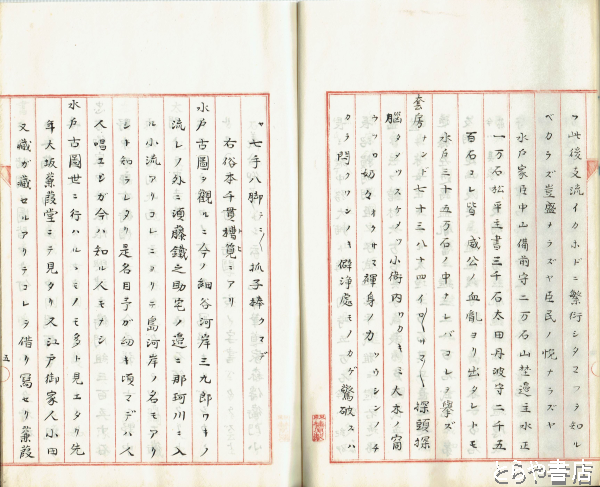 ヲ此後支流イカホドニ繁衍シタマフヲ知ル
ベカラズ豈盛ナラズヤ臣民ノ悦ナラズヤ
水戸家臣中山備前守二万石山埜邉主水正
一万石松平主書三千石太田丹波守二千五
百石コレ皆 威公ノ血胤ヨリ出タレトモ
水戸三十五万石ノ中ナレバコレヲ挙ズ
套房ナンド七十三八十四イロ 探頭探
脳タヌツスケメツ小衙内ワカキミ大本ノ甯
ウツロ奶々オクサマ渾身ノカツウシンノチ
カラ悶クワンノキ僻浄處モノカゲ驚破スハ
ヤ七手八脚 抓子棒クマデ
右俗本千貫樋筧ニアリ
水戸古圖ヲ觀ルニ今ノ細谷河岸三九郎ワキノ
流レノ外ニ須藤鐵之助宅ノ邉ニ那珂川ニ入
ル小流アリコレニヨリテ島河岸ノ名モアリ
シト知ラレタリ是名目予が幼キ頃マデハ人
人唱エシが今ハ知ル人モナシ
水戸古圖世ニ行ハルヽモノモ多ト見エタリ先
年大坂蒹葭堂ニテ見タリ又江戸御家人小田
又蔵が藏セルアリテコレヲ借リ寫セリ蒹葭
五
とらや書店